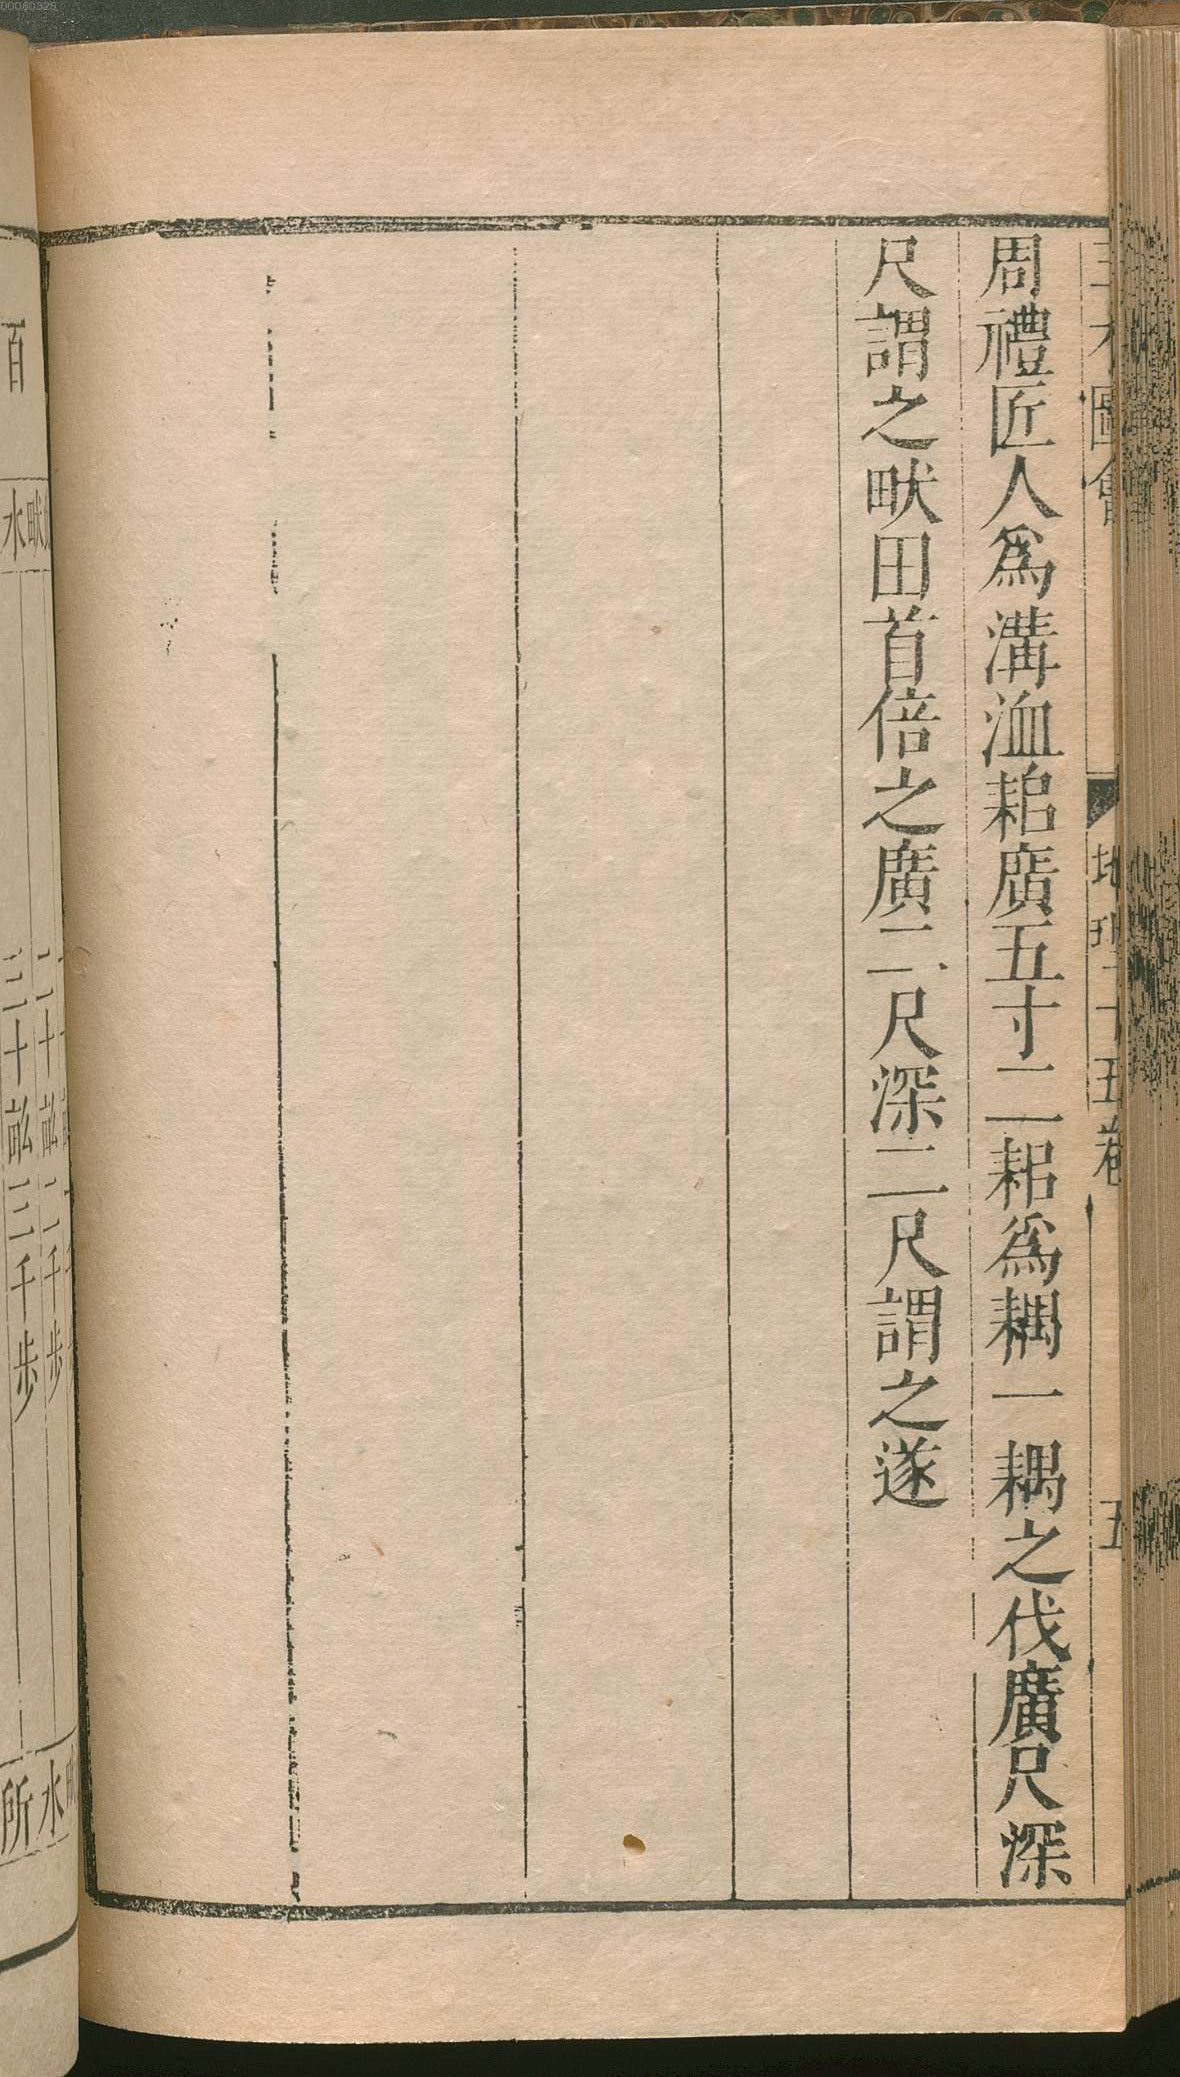 周禮匠人爲溝洫耜廣五寸二耜爲耦一耦之伐廣尺深
尺謂之畎田首倍之廣二尺深二尺謂之遂
圖會
卷
五
百
畎
水
二十畝二千步
三十畝三千步
水
所
00080328